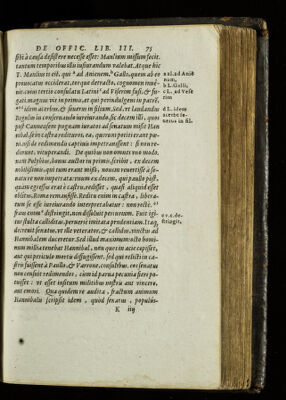 DE OFFIC. LIB. III. 75
sibi à causa desistere necesse esset: Manlium missum fecit.
tantum temporibus illis iusiurandum valebat. Atque hic
T. Manlius is est, qui ᵃ ad Anienem, ᵇ Gallo, quem ab eo
prouocatus occiderat, torque detracto, cognomen inue-
nit: cuius tertio consulatu Latini ᶜ ad Viserim fusi, & fu-
gati. magnus vir in primis, at qui perindulgens in patrē,
ᵈ idem acerbus, & seuerus in filium. Sed, vt laudandus
Regulus in conseruando iureiurando, sic decem illi, quos
post Cannensem pugnam iuratos ad senatum misit Han
nibal, se in castra redituros. ea, quorum potiti erant pœ-
ni, nisi de redimendis captiuis impetrauissent: si non re-
dierunt, vituperandi. De quibus non omnes vno modo.
nam Polybius, bonus auctor in primis, scribit, ex decem
nobilissimis, qui tum erant missi, nouem reuertisse à se-
natu re non impetrata: vnum ex decem, qui paulo post,
quàm egressus erat è castris, redisset, quasi aliquid esset
oblitus, Romæ remansisse. Reditu enim in castra, libera-
tum se esse iureiurando interpretabatur: non rectè.
fraus enim ᵉ distringit, non dissoluit periurium. Fuit igi-
tur stulta calliditas, peruersè imitata prudentiam. Itaq;
decreuit senatus, vt ille veterator, & callidus, vinctus ad
Hannibalem duceretur. Sed illud maximum: octo homi-
num millia tenebat Hannibal, non quos in acie cepisset,
aut qui periculo mortis diffugissent, sed qui relicti in ca-
stris fuissent à Paullo, & Varrone, consulibus. eos senatus
non censuit redimendos, cùm id parua pecunia fieri po-
tuisset: vt esset insitum militibus nostris aut vincere,
aut emori. Qua quidem re audita, fractum animum
Hannibalis scripsit idem, quòd senatus, populús-
K iij
a al. ad Aniē
nem,
b L. Galli,
c L. ad Vese
rim
d L. idem
acerbè se-
uerus in fil.
e v. c. de-
stringit,